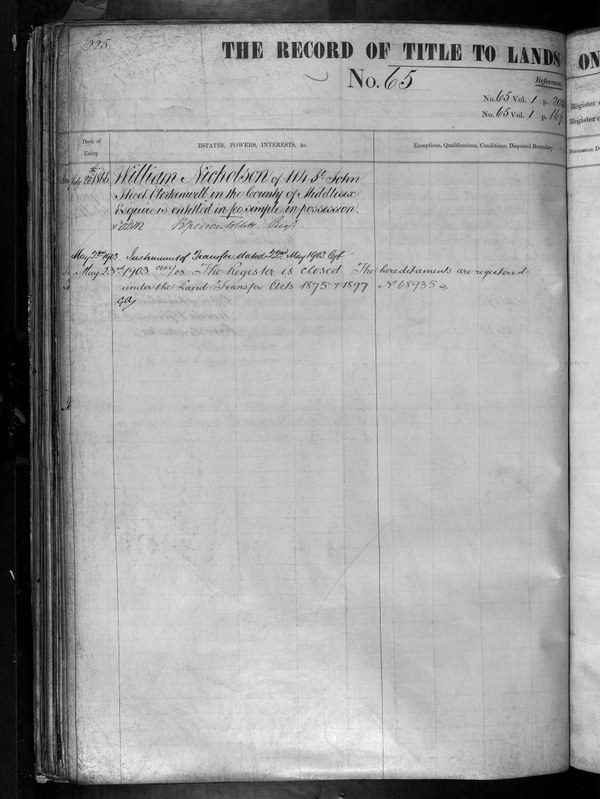 225
THE RECORD OF TITLE TO LANDS
ON
No. 65
Reference
No. 65 Vol. 1 p. 204
No. 65 Vol. 1 p. 169
Register
Register
Date of
Entry
ESTATES, POWERS, INTERESTS, &c.
Exceptions, Qualifications, Conditions, Disputed Boundary
July 20th 1866 William Nicholson of 114 St John
Street Clerkenwell in the County of Middlesex
Esquire is entitled in fee simple in possession.
May 23rd 1903 Instrument of Transfer dated 22nd May 1903
May 23rd 1903 The Register is closed The hereditaments are registered
under the Land Transfer Acts 1875 & 1897 No 68935